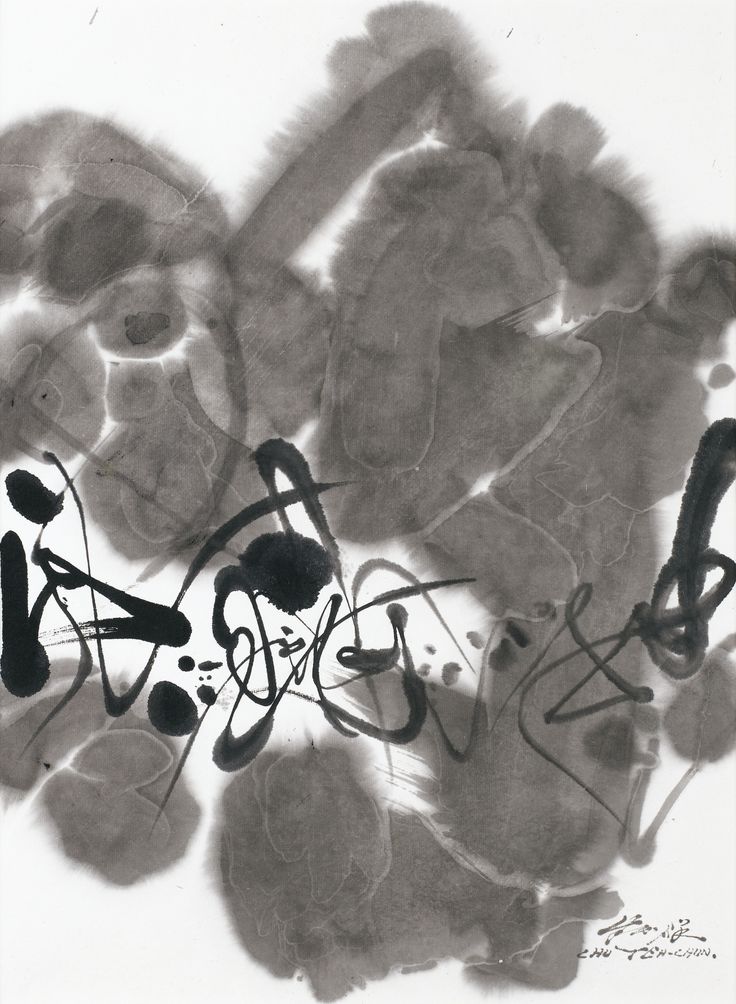 朱德群
CHU TEH-CHUN.